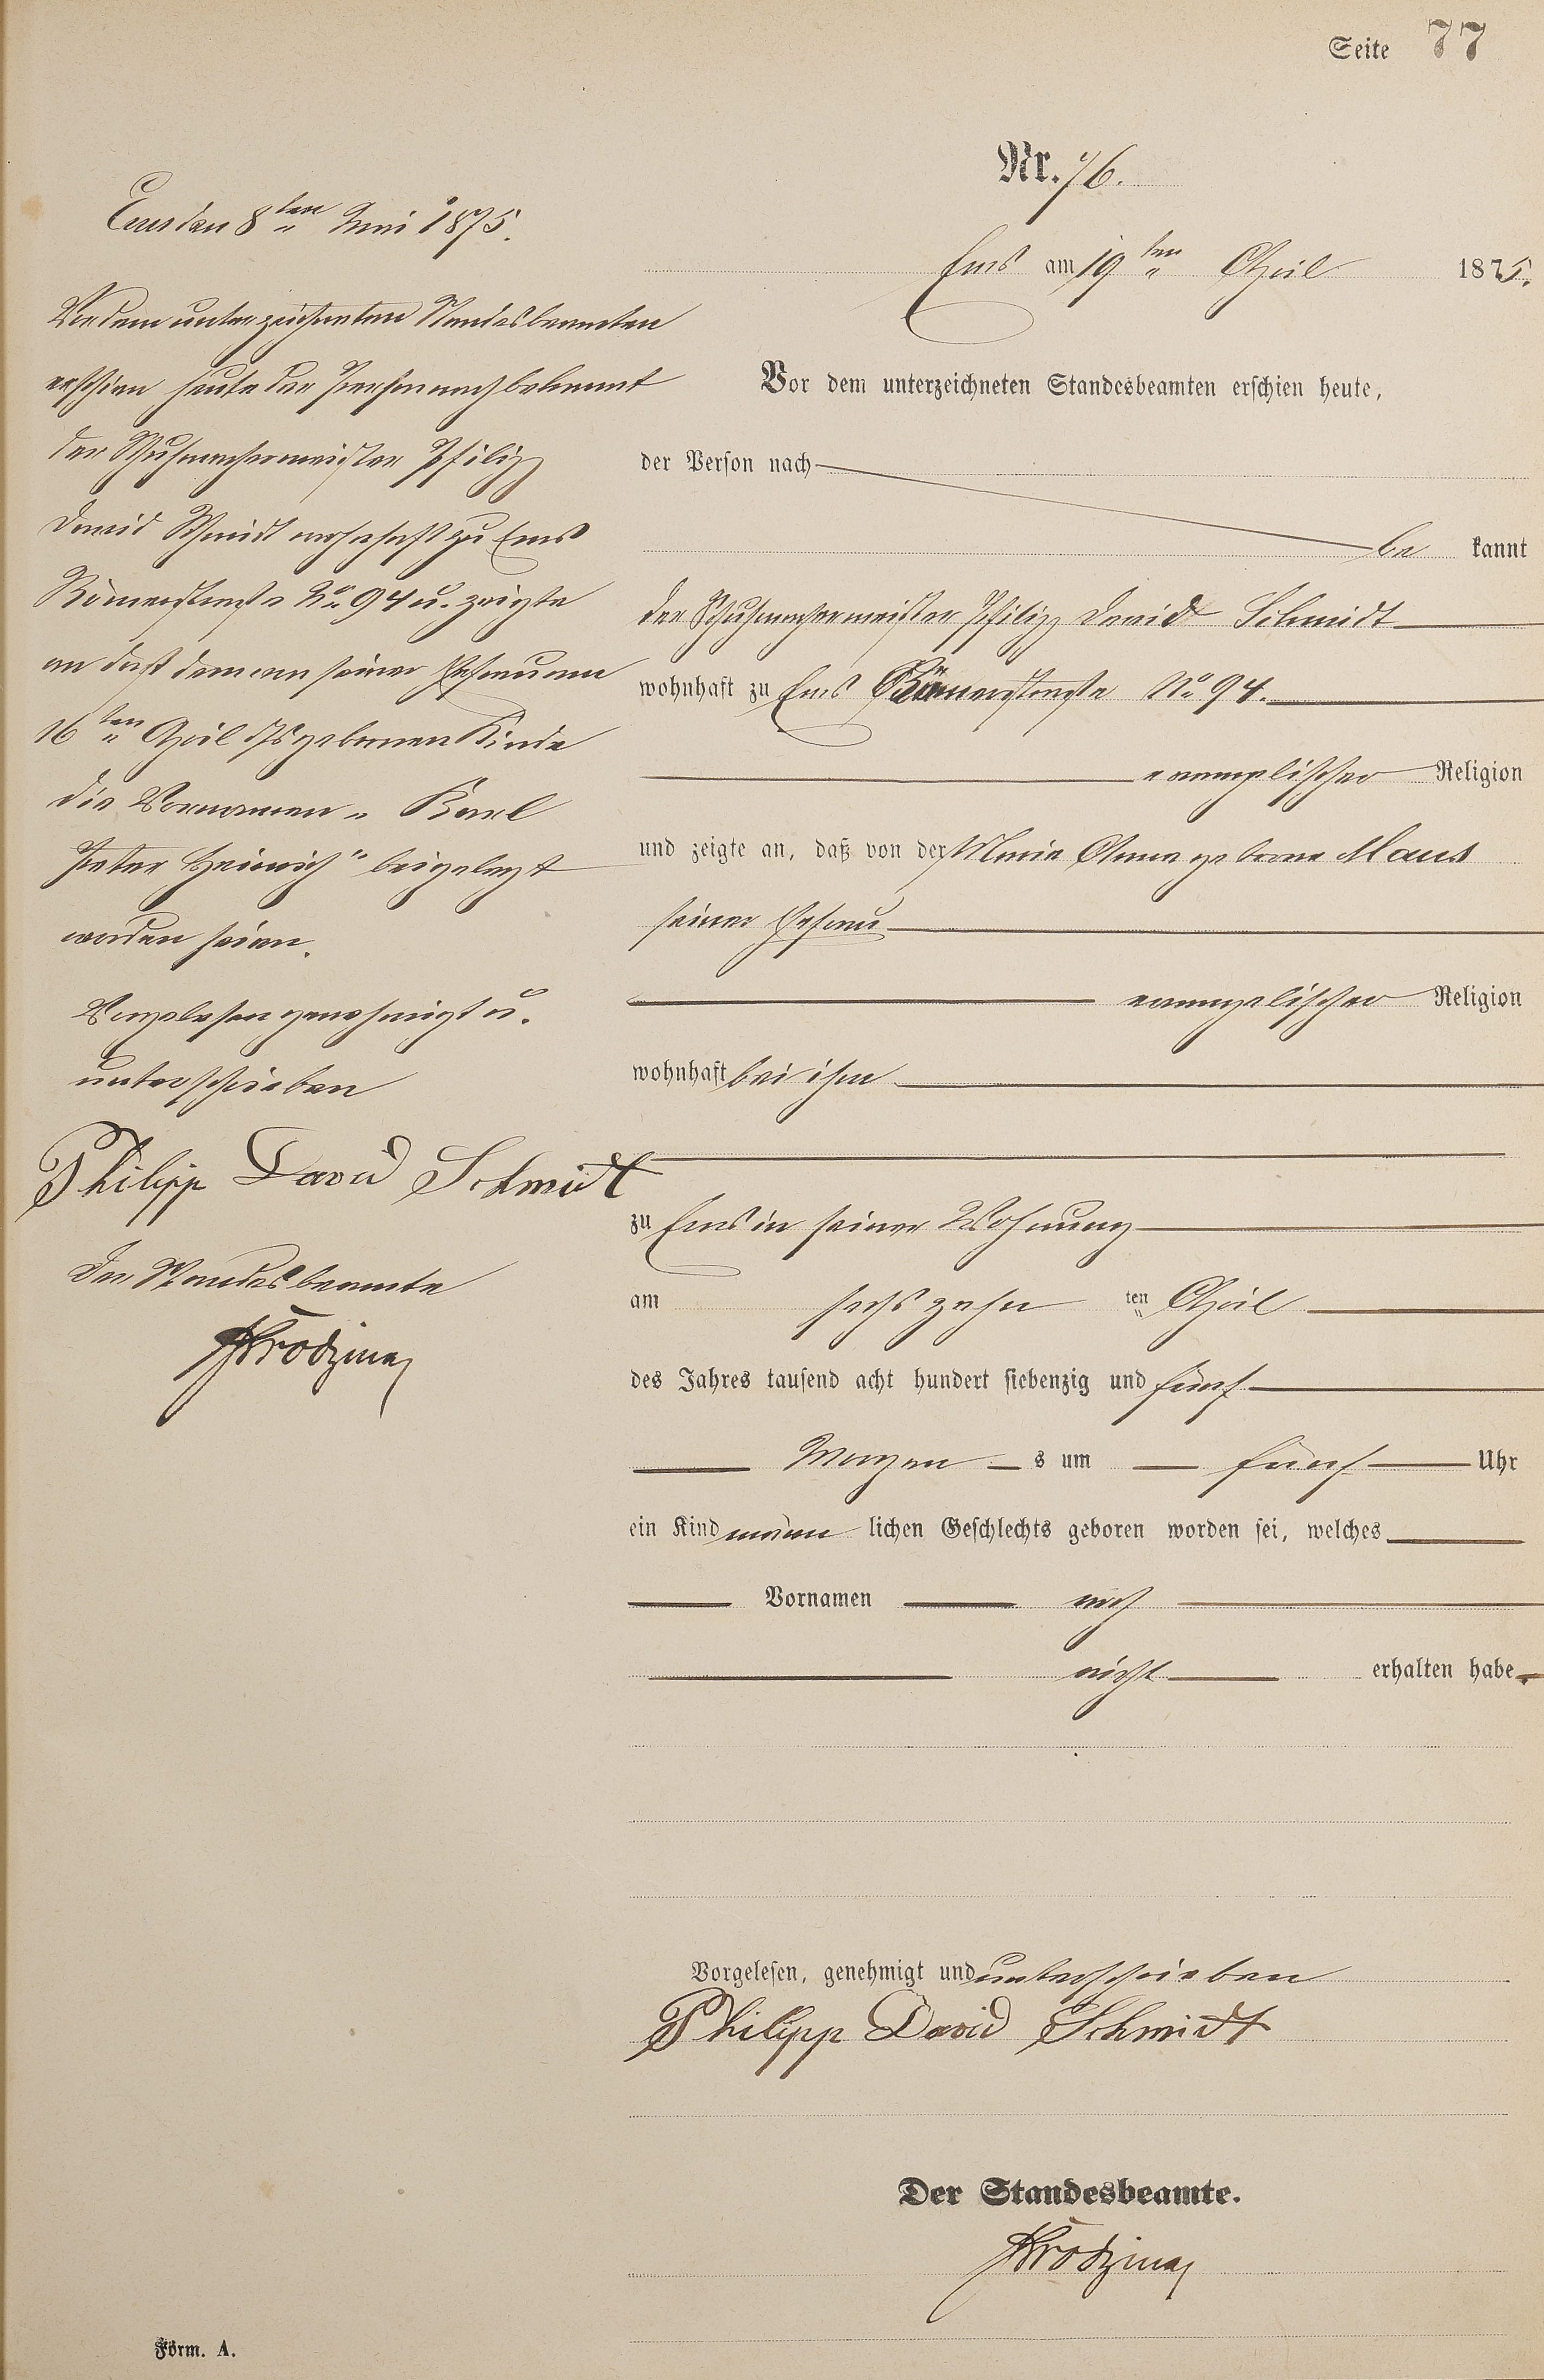 Seite 77
Nr. 76.
Ems am 19ten April 1875.
Vor dem unterzeichneten Standesbeamten erschien heute,
der Person nach
bekannt
der Schuhmachermeister Philipp David Schmidt
wohnhaft zu Ems Römerstraße No 94.
evangelischer Religion
und zeigte an, daß von der Maria Anna geborne Maus
seiner Ehefrau
evangelischer Religion
wohnhaft bei ihm
zu Ems in seiner Wohnung
am sechszehnten April
des Jahres tausend acht hundert siebenzig und fünf
Morgens um fünf Uhr
ein Kind männlichen Geschlechts geboren worden sei, welches
Vornamen noch
nicht erhalten habe
Vorgelesen, genehmigt und unterschrieben
Philipp David Schmidt
Der Standesbeamte.
Ems den 8ten Juni 1875.
Vor dem unterzeichneten Standesbeamten
erschien heute der Person nach bekannt
der Schuhmachermeister Philipp
David Schmidt wohnhaft zu Ems
Römerstraße No 94 u. zeigte
an daß dem von seiner Ehefrau am
16ten April d Js geborenen Kinde
die Vornamen „Karl
Peter Heinrich" beigelegt
worden seien.
Vorgelesen genehmigt u.
unterschrieben
Philipp David Schmidt
Der Standesbeamte
Form. A.